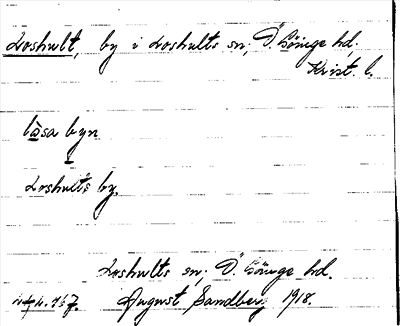 Loshult, by i Loshults sn; Ö. Göinge hd,
Krist. l.
låsa byn
Loshults by,
Loshults sn; Ö. Göinge hd.
August Sandberg 1918.